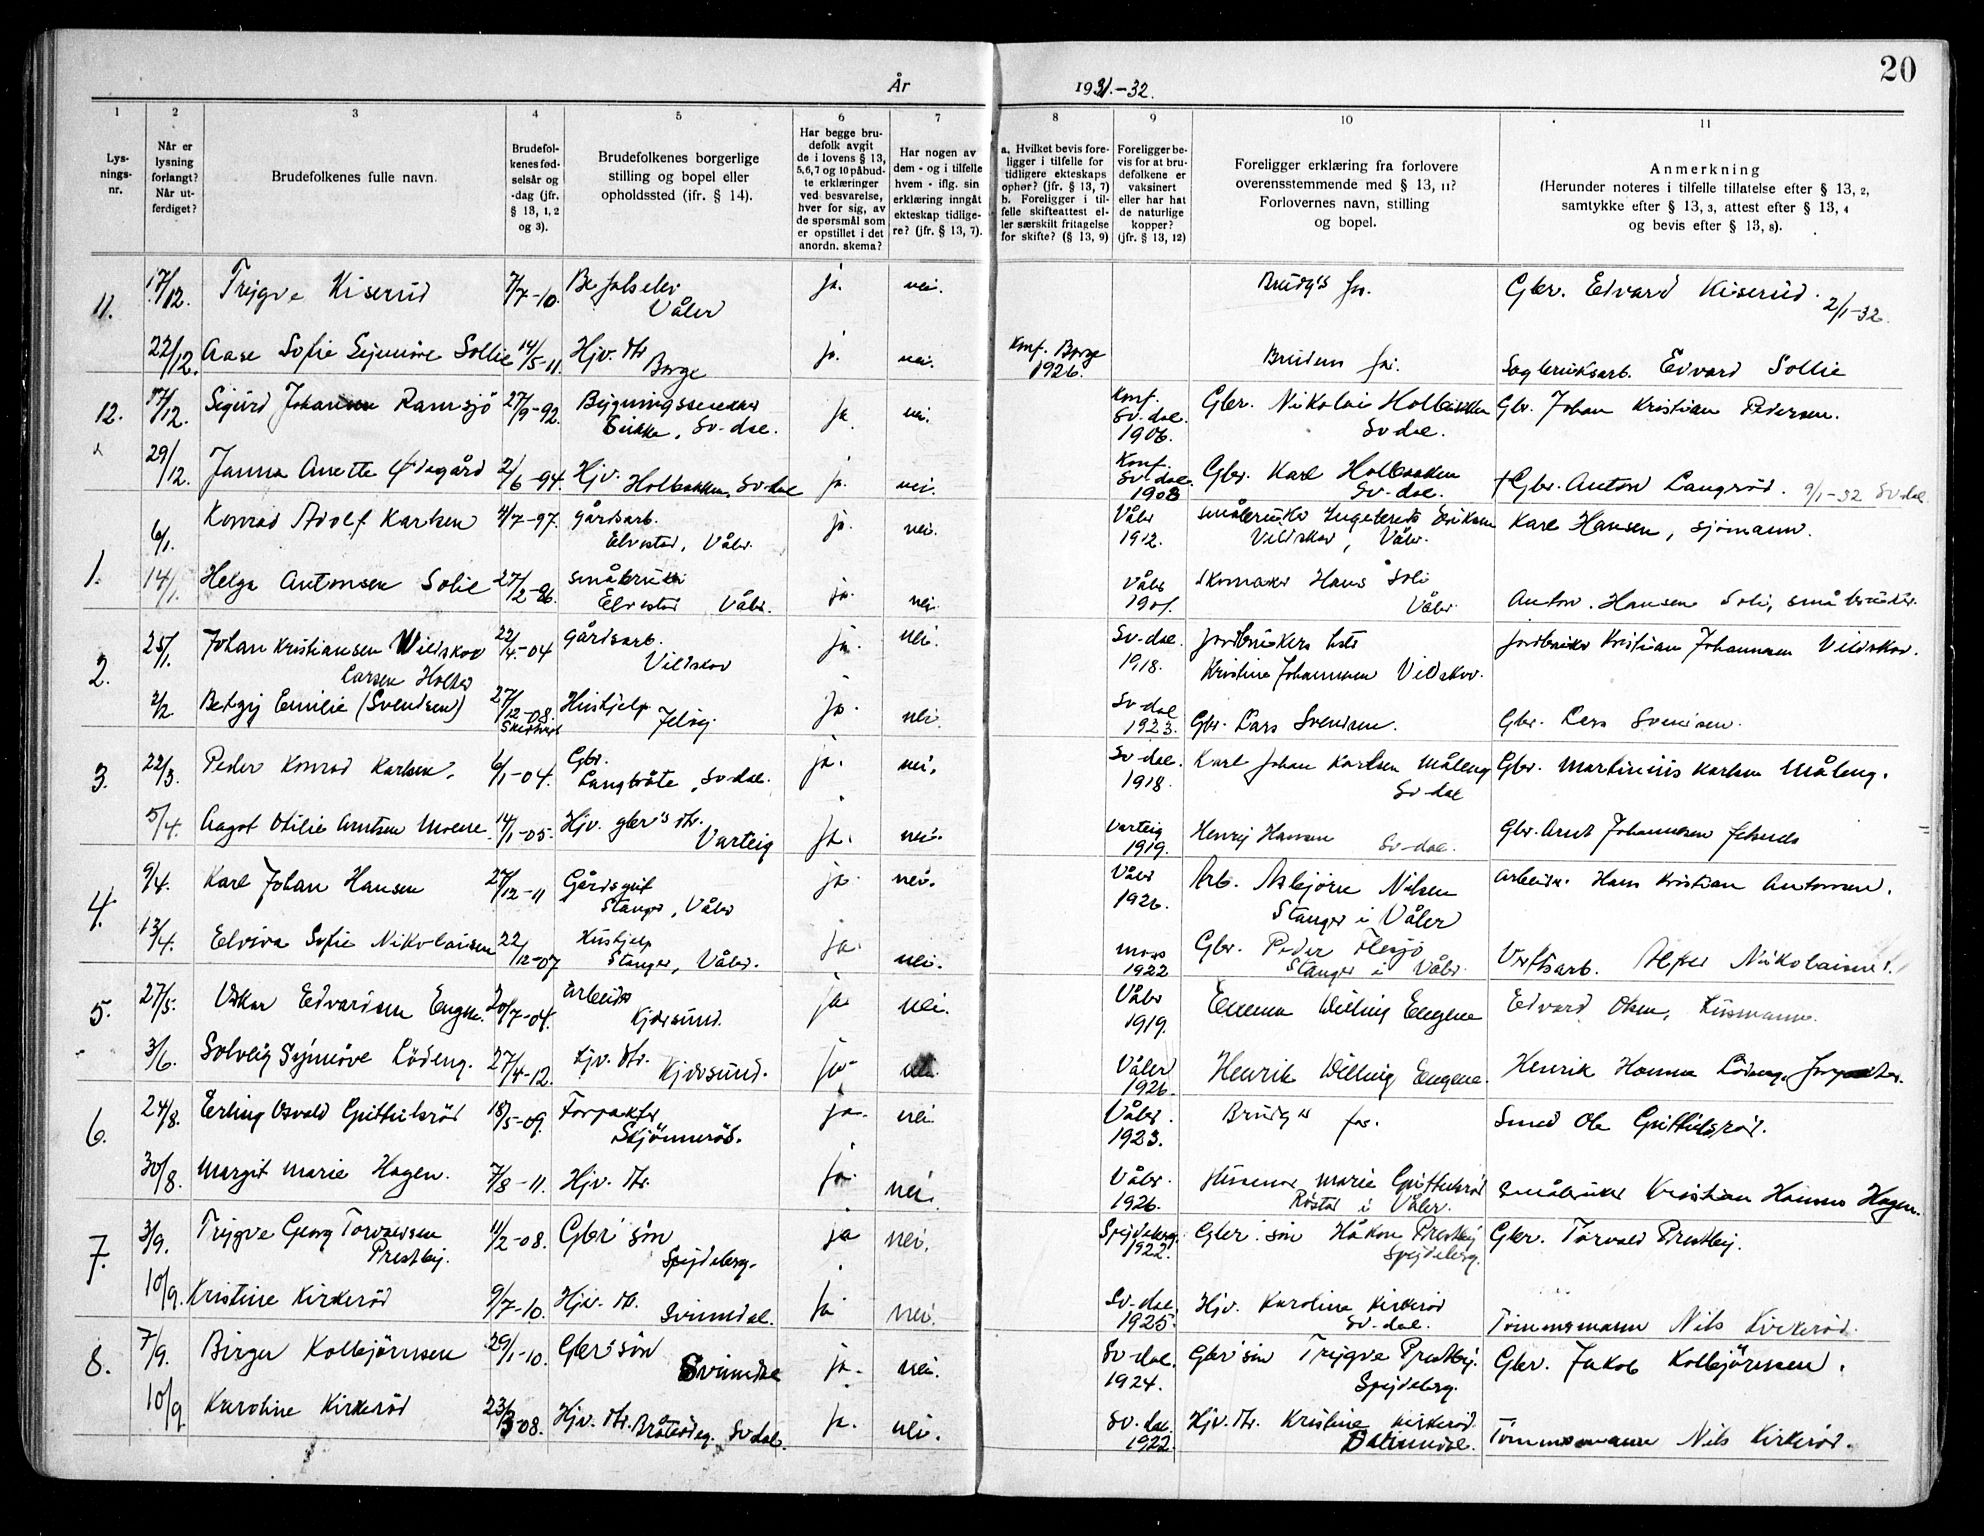 20
År 1931.-32.
1 2 3 4 5 6 7 8 9 10 11
Lys-
nings-
nr.
Når er
lysning
forlangt?
Når ut-
ferdiget?
Brudefolkenes fulle navn.
Brudefol-
kenes fød-
selsår og
-dag (jfr.
§ 13, 1, 2
og 3).
Brudefolkenes borgerlige
stilling og bopel eller
opholdssted (jfr. § 14).
Har begge bru-
defolk avgit
de i lovens § 13,
5, 6, 7 og 10 påbud-
te erklæringer
ved besvarelse,
hver for sig, av
de spørsmål som
er opstillet i det
anordn. skema?
Har nogen av
dem - og i tilfelle
hvem - iflg. sin
erklæring inngåt
ekteskap tidlige-
re? (jfr. § 13, 7).
a. Hvilket bevis fore-
ligger i tilfelle for
tidligere ekteskaps
ophør? (jfr. § 13, 7)
b. Foreligger i til-
felle skifteattest el-
ler særskilt fritagelse
for skifte? (§ 13, 9)
Foreligger be-
vis for at bru-
defolkene er
vaksinert
eller har hat
de naturlige
kopper?
(jfr. § 13, 12)
Foreligger erklæring fra forlovere
overensstemmende med § 13, 11?
Forlovernes navn, stilling
og bopel.
Anmerkning
(Herunder noteres i tilfelle tillatelse efter § 13, 2,
samtykke efter § 13, 3, attest efter § 13, 4
og bevis efter § 13, 8).
11. 17/12. Trygve Kiserud 7/7-10. Befalselev Våler ja. nei. Brudg's far. Gbr. Edvard Kiserud. 2/1-32.
22/12. Aase Sofie Synnöve Sollie 14/5-11. Hjv. dtr. Borge ja. nei. Konf. Borge 1926. Brudens far. Sagbruksarb. Edvard Sollie
12. 17/12. Sigurd Johansen Ramsjö 27/9-92. Bygningssnekker Sv-dal. ja. nei. Konf. Sv-dal. 1906. Gbr. Nikolai Holbakken Sv-dal. Gbr. Johan Kristian Pedersen.
29/12. Janna Anette Ødegård 2/6-94. Hjv. Holbakken, Sv-dal ja. nei. Konf. Sv-dal. 1908 Gbr. Karl Holbakken Sv-dal. Gbr. Anton Langröd. 9/1-32 Sv-dal.
1. 6/1. Konrad Adolf Karlsen 4/7-97. gårdsarb. Elvestad, Våler. ja. nei. Våler 1912. småbruker Eriksen Vildskov, Våler. Karl Hansen, sjömann.
14/1. Helga Antonsen Solie 27/2-86. småbruker Elvestad Våler. ja. nei. Våler 1901. Skomaker Hans Soli Våler. Anton Hansen Soli, småbruker.
2. 25/1. Johan Kristiansen Vildskov 22/4-04 gårdsarb. Vildskov ja. nei. Sv-dal. 1918. Jordbrukers Kristine Johannesen Vildskov. jordbruker Kristian Johannesen Vildskov.
2/2 Larsen Holter
Betzy Emilie (Svendsen) 27/12-08. Hushjelp Jelöy ja. nei. Sv-dal 1923. Gbr. Lars Svendsen. Gbr. Lars Svendsen.
3. 22/3. Peder Konrad Karlsen. 6/1-04. Gbr. Langbråte, Sv-dal. ja. nei. Sv-dal. 1918. Karl Johan Karlsen Måleng Sv-dal Gbr. Martinius Karlsen Måleng.
5/4. Aagot Otilie Arntsen Moene. 14/1-05. Hjv. gbr's dtr. Varteig ja. nei. Varteig 1919. Henry Hansen Sv-dal. Gbr. Arnt Johannesen
4. 9/4. Karl Johan Hansen 27/12-11 Gårdsgut Stanger, Våler ja. nei. Våler 1926. Arb. Asbjörn Nilsen Stanger i Våler arbeider. Hans Kristian Antonsen.
13/4. Elvira Sofie Nikolaisen 22/12-07 Hushjelp Stanger, Våler. ja. nei. Moss 1922 Gbr. Peder Flesjö Stanger i Våler. Verftsarb. Alfred Nikolaisen
5. 27/5. Oskar Edvardsen Engen. 20/7-04. arbeider Kjærsund. ja. nei. Våler 1919. Emma Willing Engene Edvard Olsen, husmann.
3/6. Solveig Synnöve Lödeng. 27/4-12. Hjv. dtr. Kjærsund. ja. nei. Våler 1926. Henrik Willing Engene. Henrik Hansen Lödeng. forpakter.
6. 24/8. Erling Osvald Guttulsröd 18/5-09. Forpakter Skjönneröd. ja. nei. Våler. 1923. Brudg's far. Smed Ole Guttulsröd.
30/8. Margit Marie Hagen. 7/8-11. Hjv. dtr. ja. nei. Våler. 1926. Marie Guttulsröd Röstad i Våler. Småbruker Kristian Hansen Hagen.
7. 3/9. Trygve Georg Torvaldsen Prestby. 11/2-08. Gbr's sön Spydeberg. ja nei. Spydeberg. 1922. Gbr's sön Håkon Prestby Spydeberg. Gbr. Torvald Prestby.
10/9. Kristine Kirkeröd 9/7-10. Hjv. dtr. Svinndal. ja nei. Sv-dal. 1925. Hjv. Karoline Kirkeröd Sv-dal. Tömmermann Nils Kirkeröd.
8. 7/9. Birger Kolbjörnsen 29/1-10. Gbr's sön Svinndal ja. nei. Sv-dal. 1924. Gbr's sön Trygve Prestby. Spydeberg. Gbr. Jakob Kolbjörnsen.
10/9 Karoline Kirkeröd 23/3-08. Hjv. dtr. Sv-dal. ja. nei. Sv-dal 1922. Hjv. dtr. Kristine Kirkeröd. Tömmermann Nils Kirkeröd.